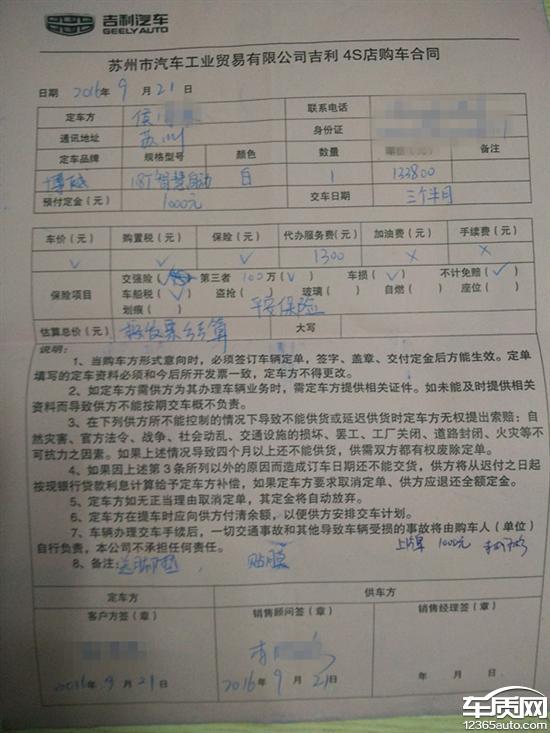 吉利汽车
GEELY AUTO
苏州市汽车工业贸易有限公司吉利 4S店购车合同
日期 2016年 9 月 21 日
定车方
联系电话
通讯地址 苏州
身份证
定车品牌 规格型号 颜色 数量 备注
博越 1.8T智慧自动 白 1 133800
预付定金(元) 1000元 交车日期 三个半月
车价(元) 购置税(元) 保险(元) 代办服务费(元) 加油费(元) 手续费(元)
√ √ √ 1300 × ×
保险项目
交强险(√) 第三者 100万(√) 车损(√) 不计免赔(√)
车船税(√) 盗抢( ) 玻璃( ) 自燃( ) 座位( )
划痕( ) 平安保险
估算总价(元) 按发票结算 大写
说明:
1、当购车方形式意向时,必须签订车辆定单,签字、盖章、交付定金后方能生效。定单
填写的定车资料必须和今后所开发票一致,定车方不得更改。
2、如定车方需供方为其办理车辆业务时,需定车方提供相关证件。如未能及时提供相关
资料而导致供方不能按期交车概不负责。
3、在下列供方所不能控制的情况下导致不能供货或延迟供货时定车方无权提出索赔:自
然灾害、官方法令、战争、社会动乱、交通设施的损坏、罢工、工厂关闭、道路封闭、火灾等不
可抗力之因素。如果上述情况导致四个月以上还不能供货,供需双方都有权废除定单。
4、如果因上述第3条所列以外的原因而造成订车日期还不能交货,供方将从迟付之日起
按现银行贷款利息计算给予定车方补偿,如果定车方要求取消定单、供方应退还全额定金。
5、定车方如无正当理由取消定单,其定金将自动放弃。
6、定车方在提车时应向供方付清余额,以便供方安排交车计划。
7、车辆办理交车手续后,一切交通事故和其他导致车辆受损的事故将由购车人(单位)
自行负责,本公司不承担任何责任。 上牌 1000元
8、备注: 送脚垫 贴膜
定车方 供车方
客户方签(章) 销售顾问签(章) 销售经理签(章)
2016年 9 月 21日 2016年 9 月 21日 年 月 日
车质网
12365auto.com